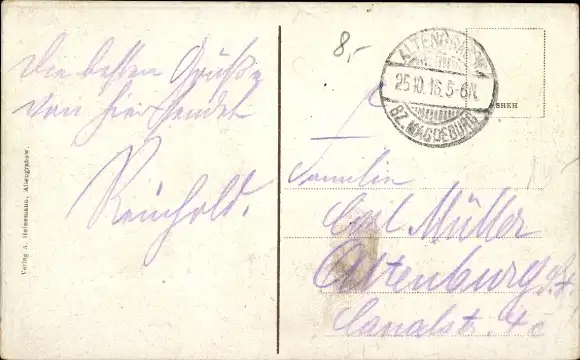 Die besten Grüße
von hier sendet
Reinhold.
Verlag A. Heinemann, Altengrabow.
8,-
ALTENGRABOW
25.10.16. 5-6N.
BZ. MAGDEBURG
SHKH
Familie
Carl Müller
Altenburg S.A.
Canalstr. 4c